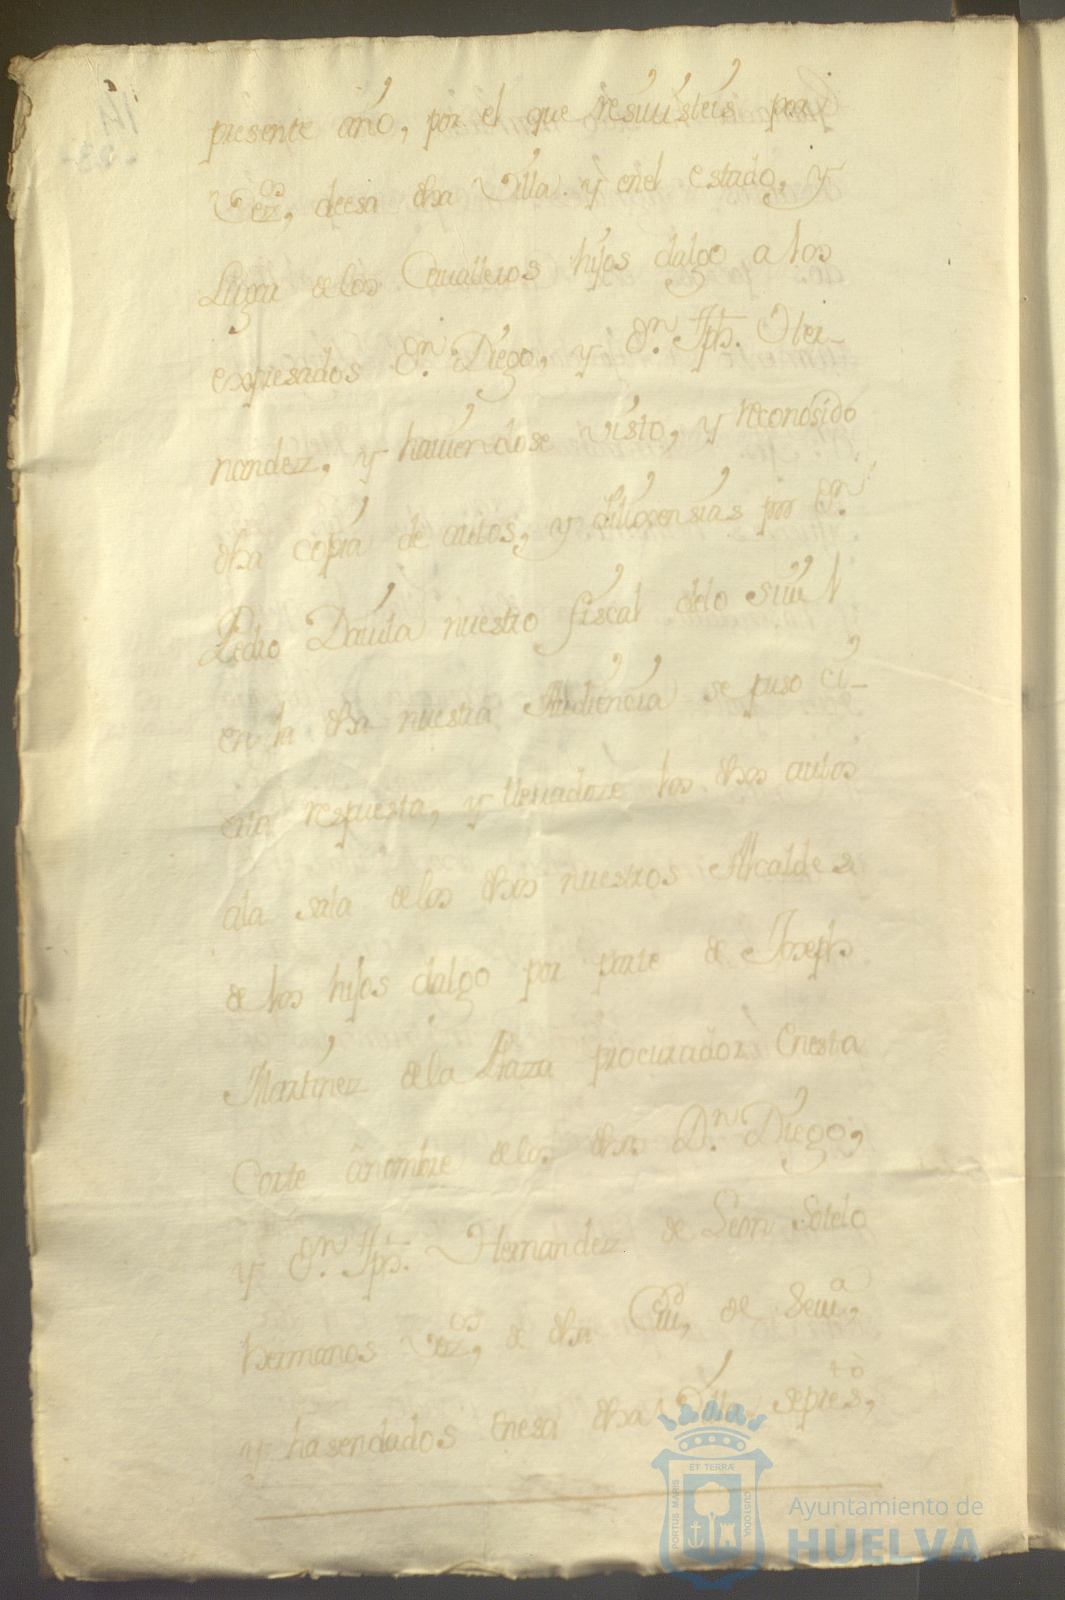 presente año, por el que resiuisteis por
Vez.os, deesa dha Villa. y enel estado, y
Lugar delos Caualleros hijos dalgo a los
expresados Dn. Diego, y Dn. Jph. Her-
nandez, y hauiendose visto, y reconosido
dha copia de autos, y diligensias por Dn.
Pedro Dauila nuestro fiscal delo siuil
en la dha nuestra Audiencia se puso ci-
erta respuesta, y lleuadose los dhos autos
ala sala delos dhos nuestros Alcaldes
de los hijos dalgo por parte de Joseph
Martinez dela Plaza procurador enesta
Corte ânombre delos dhos Dn. Diego,
y Dn. Jph. Hernandez de Leon Sotelo
hermanos Vez.os, de dha Ciud, de Seuia,
y hasendados enesa dha Villa, sepresto,
PORTUS MARIS
ET TERRÆ
CUSTODIA
Ayuntamiento de
HUELVA